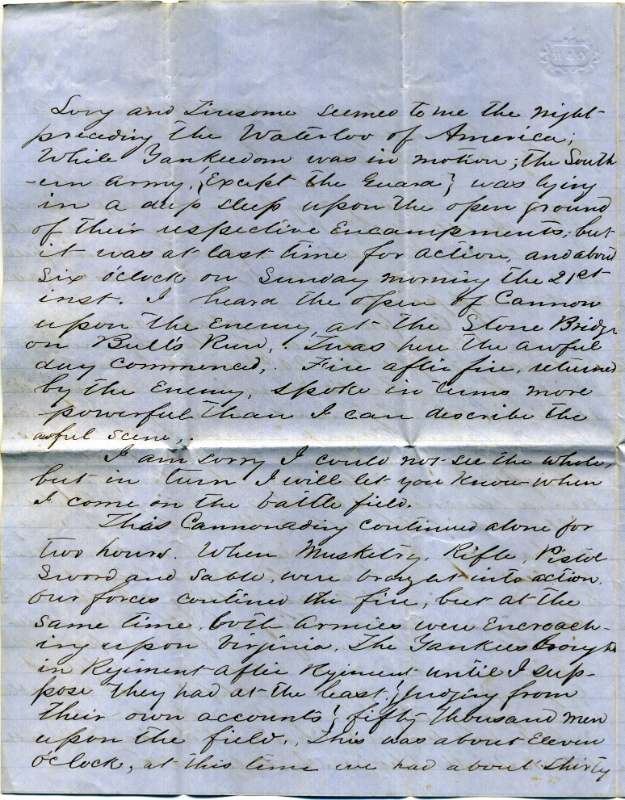 Long and Tiresome seemed to me the night
preceding the Waterloo of America;
While Yankeedom was in motion; the South
-ern Army, {Except the Guard} was lying
in a deep sleep upon the open ground
of their respective Encampments, but
it was at last time for action, and about
Six o'clock on Sunday morning the 21st
inst. I heard the open of Cannon
upon the Enemy, at the Stone Bridge
on Bull's Run, Twas here the awful
day commenced,. Fire after fire, returned
by the Enemy, spoke in terms more
powerful than I can describe the
awful scene,.
I am sorry I could not see the whole,
but in turn I will let you know when
I come on the battle field.
This Cannonading continued alone for
two hours. When Musketry, Rifle, Pistol
Sword and Sable, were brought into action.
Our forces contined the fire, but at the
same time both Armies were Encroach-
ing upon Virginia, The Yankees brought
in Regiment after Regiment until I sup-
pose they had at the least, {judging from
their own accounts} fifty thousand men
upon the field,. This was about Eleven
o'clock, at this time we had about thirty